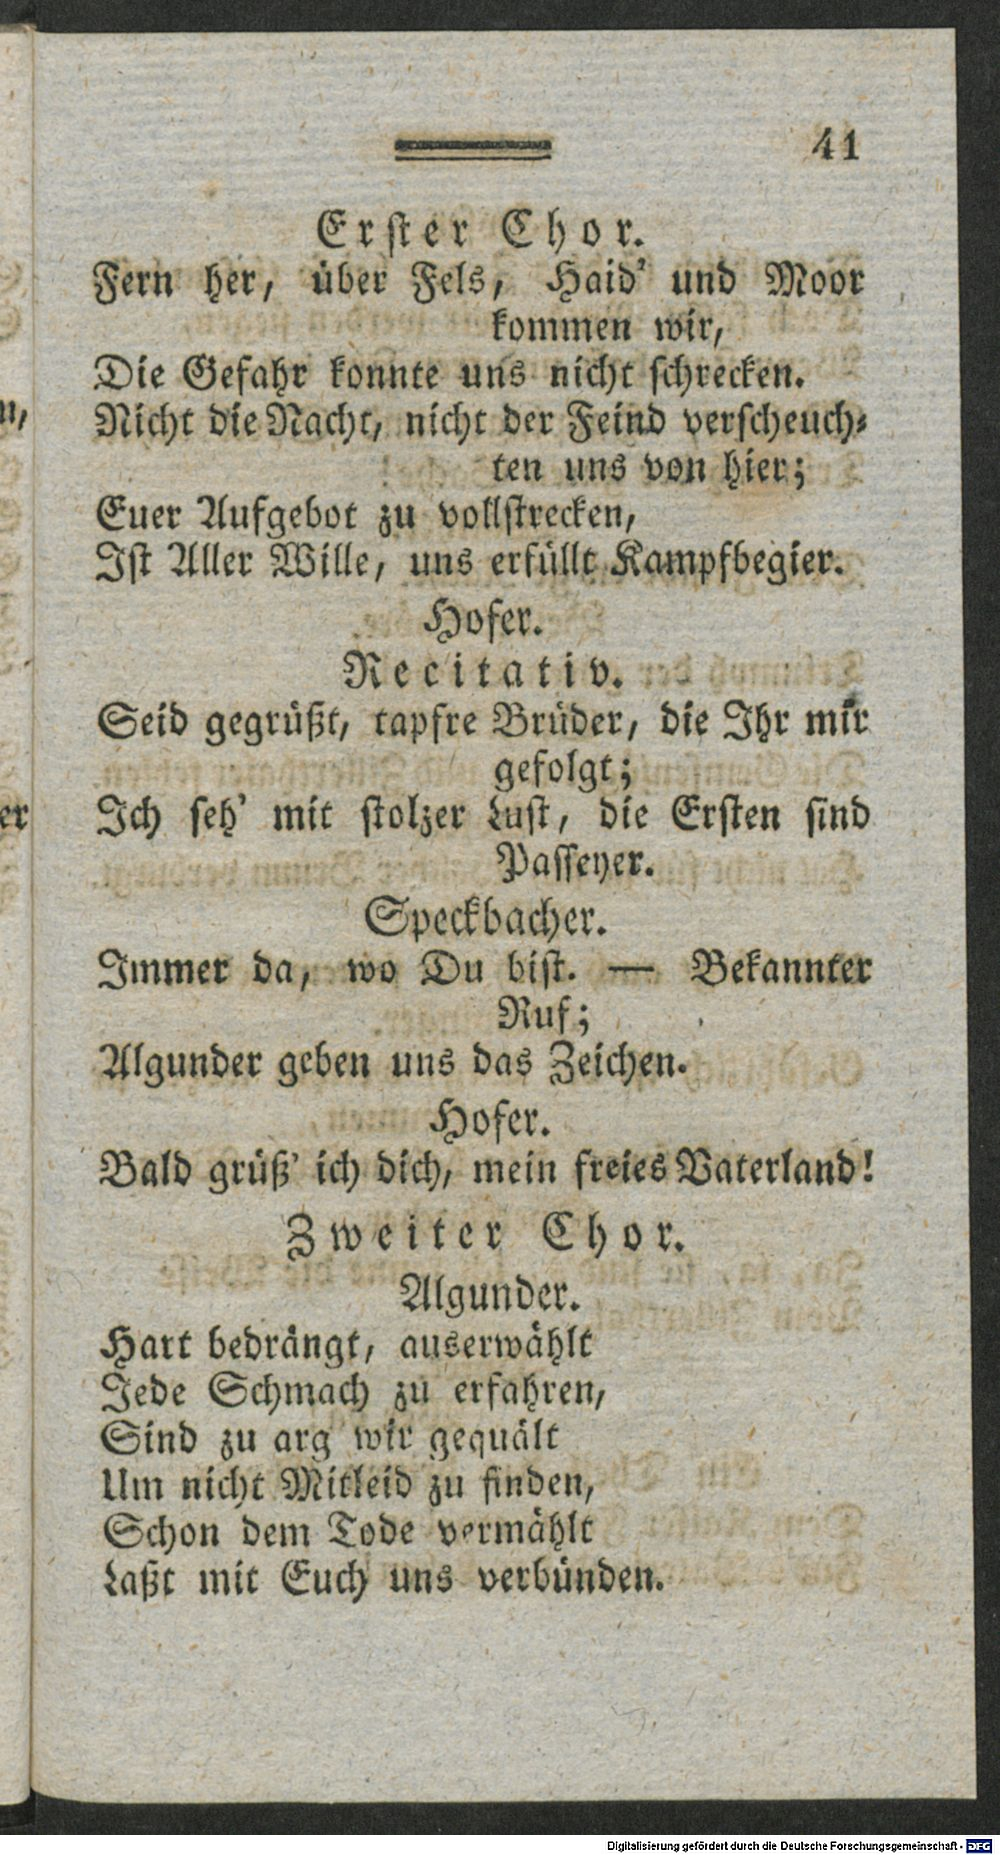 41
Erster Chor.
Fern her, über Fels, Haid' und Moor
kommen wir,
Die Gefahr konnte uns nicht schrecken.
Nicht die Nacht, nicht der Feind verscheuch-
ten uns von hier;
Euer Aufgebot zu vollstrecken,
Ist Aller Wille, uns erfüllt Kampfbegier.
Hofer.
Recitativ.
Seid gegrüßt, tapfre Brüder, die Ihr mir
gefolgt;
Ich seh' mit stolzer Lust, die Ersten sind
Passeyer.
Speckbacher.
Immer da, wo Du bist. — Bekannter
Ruf;
Algunder geben uns das Zeichen.
Hofer.
Bald grüß' ich dich, mein freies Vaterland!
Zweiter Chor.
Algunder.
Hart bedrängt, auserwählt
Jede Schmach zu erfahren,
Sind zu arg wir gequält
Um nicht Mitleid zu finden,
Schon dem Tode vermählt
Laßt mit Euch uns verbünden.
n,
er
Digitalisierung gefördert durch die Deutsche Forschungsgemeinschaft - DFG